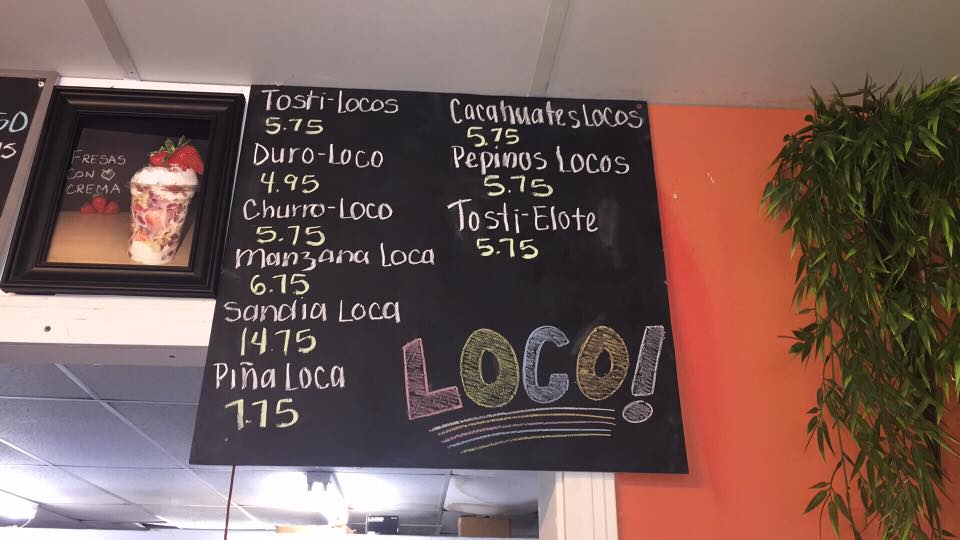 50
5
FRESAS
CON
CREMA
Tosti-Locos
5.75
Duro-Loco
4.95
Churro-Loco
5.75
Manzana Loca
6.75
Sandia Loca
14.75
Piña Loca
7.75
Cacahuates Locos
5.75
Pepinos Locos
5.75
Tosti-Elote
5.75
LOCO!